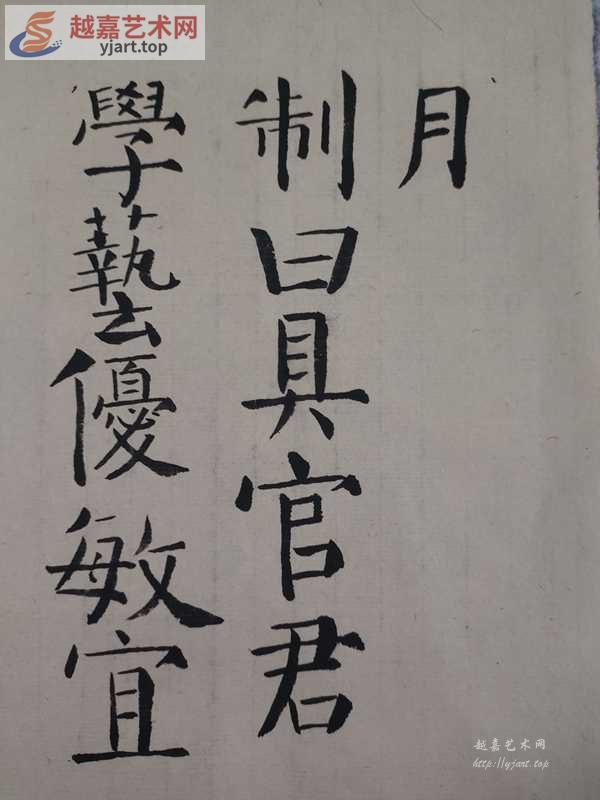 越嘉艺术网
yjart.top
月
制曰具官君
學藝優敏宜
越嘉艺术网
http://yjart.top